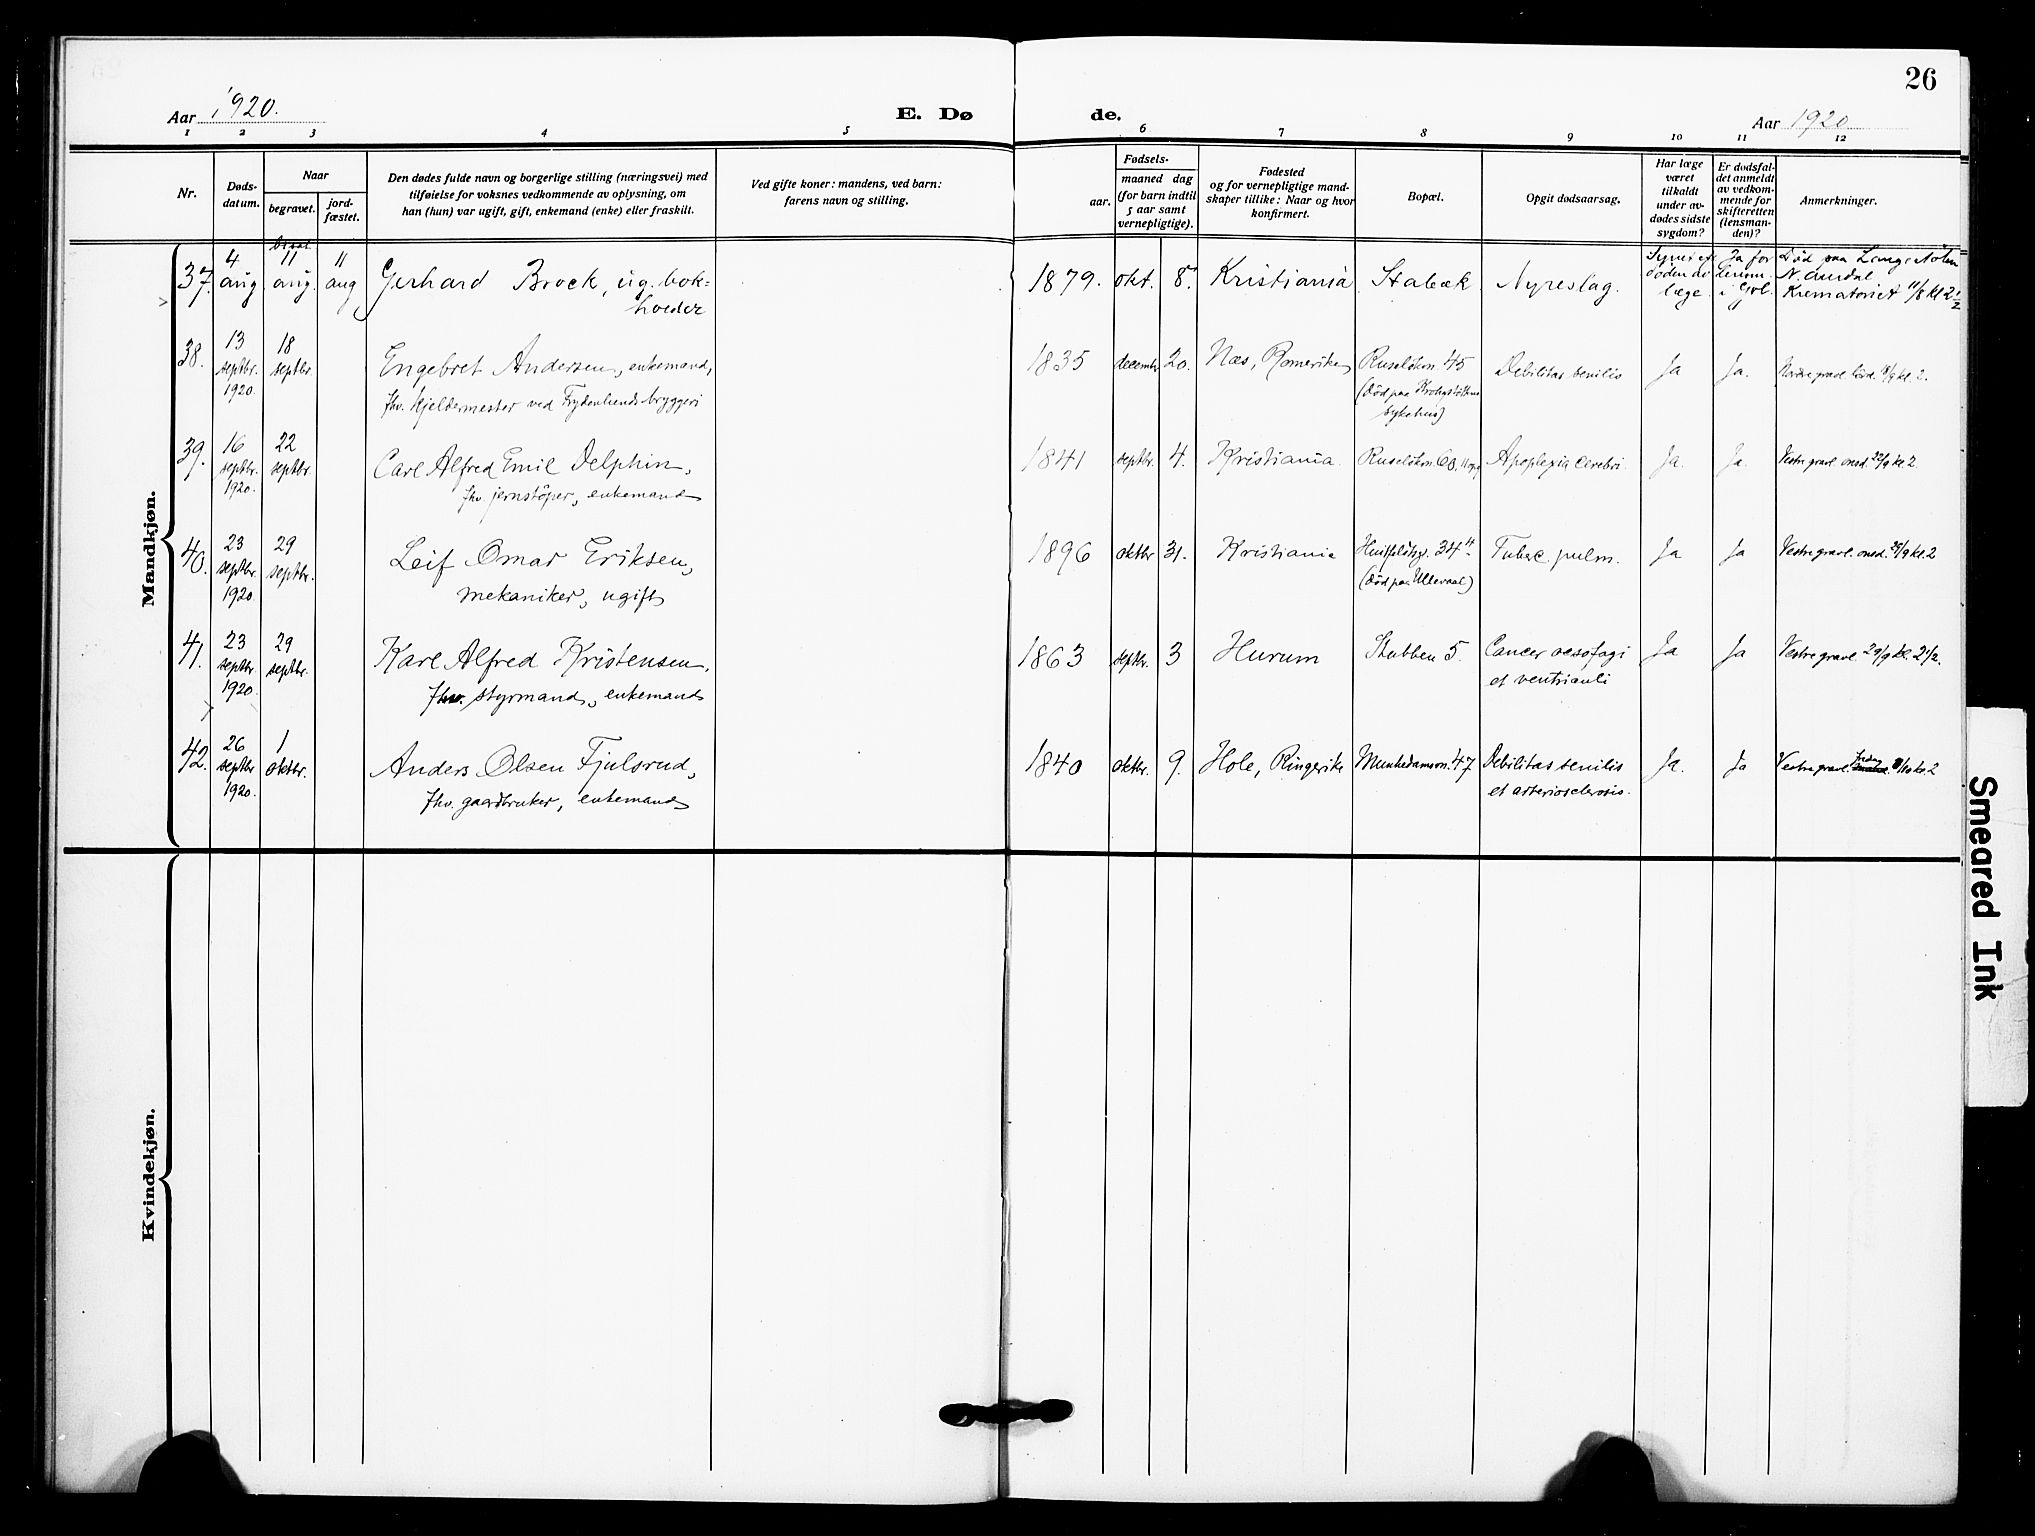 26
Aar 1920.
E. Dø
de.
Aar 1920
1 2 3 4 5 6 7 8 9 10 11 12
Nr.
Døds-
datum.
Naar
begravet.
jord-
fæstet.
Den dødes fulde navn og borgerlige stilling (næringsvei) med
tilføielse for voksnes vedkommende av oplysning, om
han (hun) var ugift, gift, enkemand (enke) eller fraskilt.
Ved gifte koner: mandens, ved barn:
farens navn og stilling.
Fødsels-
aar.
maaned dag
(for barn indtil
5 aar samt
vernepligtige).
Fødested
og for vernepligtige mand-
skaper tillike: Naar og hvor
konfirmert.
Bopæl.
Opgit dødsaarsag.
Har læge
været
tilkaldt
under av-
dødes sidste
sygdom?
Er dødsfal-
det anmeldt
av vedkom-
mende for
skifteretten
(lensman-
den)?
Anmerkninger.
Mandkjøn.
37.
4
aug
11
aug.
11
aug
Gerhard Brock, ug. bok-
holder
1879. okt. 8. Kristiania Stabæk Nyreslag.
læge
Ja for
Død paa
N. Aurdal
Krematoriet 11/8 kl 2 1/2
38.
13
septbr.
1920.
18
septbr.
Engebret Andersen, enkemand,
fhv. kjeldermester ved Frydenlunds bryggeri
1835 decembr 20. Næs, Romerike Ruseløkvn. 45
(død paa Krohgstøttens
sykehus)
Debilitas senilis Ja Ja.
Nordre gravl. lørd. 18/9 kl. 2.
39.
16
septbr.
1920.
22
septbr.
Carl Alfred Emil Delphin,
fhv. jernstøper, enkemand
1841 septbr. 4. Kristiania. Ruseløkvn. 60, Apoplexia cerebri. Ja. Ja.
Vestre gravl. onsd. 22/9 kl 2.
40.
23
septbr.
1920.
29
septbr.
Leif Omar Eriksen,
mekaniker, ugift
1896 oktbr 31. Kristiania Huitfeldtsgt. 34 II
(død paa Ullevaal)
Tuberc. pulm. Ja Ja
Vestre gravl. onsd. 29/9 kl. 2
41.
23
septbr.
1920.
29
septbr.
Karl Alfred Kristensen,
fhv. styrmand, enkemand
1863 septbr. 3 Hurum Stubben 5. Cancer oesofagi
et ventriculi
Ja Ja
Vestre gravl. 29/9 kl. 2 1/2.
42.
26
septbr
1920.
1
oktbr.
Anders Olsen Fjulsrud,
fhv. gaardbruker, enkemand
1840 oktbr. 9. Hole, Ringerike Munkedamsvn. 47 Debilitas senilis
et arteriosclerosis.
Ja. Ja
Vestre gravl. fredag 1/10 kl 2
Kvindekjøn.
Smeared Ink